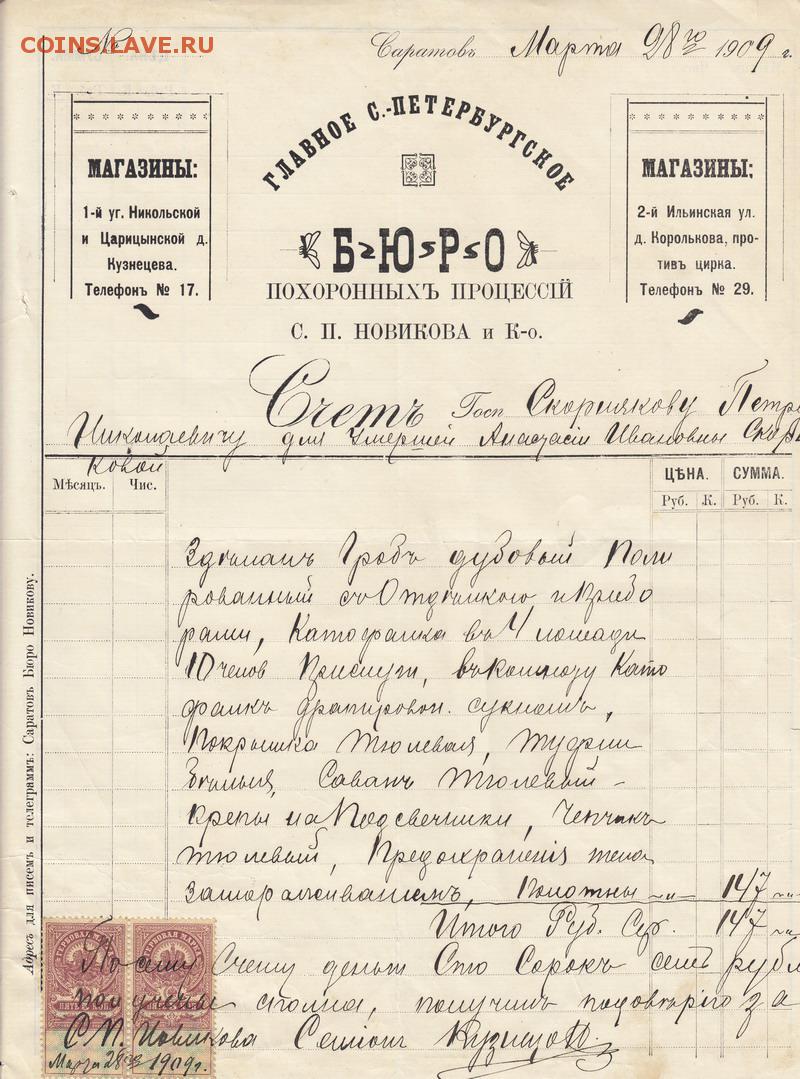 COINSS.LAVE.RU
№
Саратовъ Марта 28го 1909 г.
МАГАЗИНЫ:
1-й уг. Никольской
и Царицынской д.
Кузнецева.
Телефонъ № 17.
ГЛАВНОЕ С.-ПЕТЕРБУРГСКОЕ
БЮРО
ПОХОРОННЫХЪ ПРОЦЕССІЙ
С. П. НОВИКОВА и К-о.
МАГАЗИНЫ:
2-й Ильинская ул.
д. Королькова, про-
тивъ цирка.
Телефонъ № 29.
Счетъ Госп Скорнякову Петр
Николаевичу для Умершей Анастасіи Ивановны Скор
ковой
Мѣсяцъ. Чис. ЦѢНА. СУММА.
Руб. К. Руб. К.
Здѣланъ Гробъ дубовый Поли
рованный съ Отдѣлкою и Прибо
рами, Катафалка въ 4 лошади
10 челов Прислуги, въ комнату Ката
фалкъ драпирован. сукномъ,
Покрышка тюлевая, туфли
бѣлыя, Саванъ тюлевый -
крепы на Подсвечники, Чепчикъ
тюлевый, Предохраненія тела
замораживаніемъ, Полотны 147
Итого Руб. Сер. 147
По сему Счету деньги Сто Сорокъ семь рубл
получены сполна, получилъ по доверію за
С П. Новикова Семіонъ Кузнецовъ
Марта 28го 1909 г.
ГЕРБОВАЯ МАРКА ГЕРБОВАЯ МАРКА
Адресъ для писемъ и телеграммъ: Саратовъ Бюро Новикову.